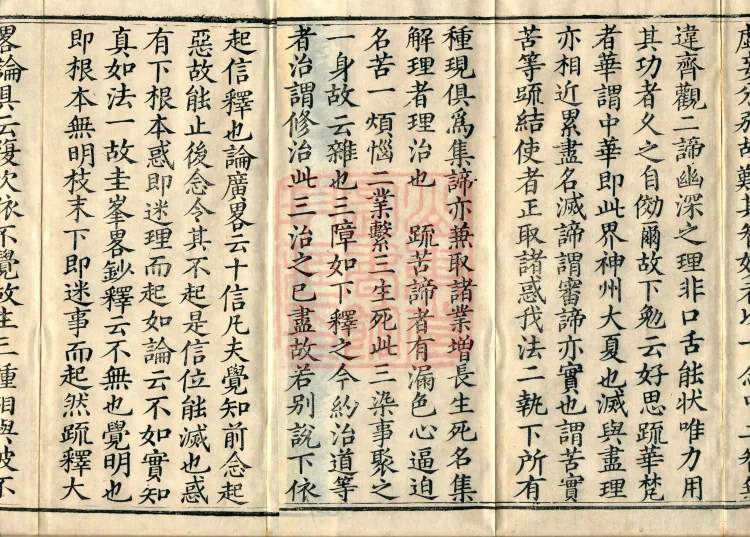 違齊觀二諦幽深之理非口舌能狀唯力用
其功者久之自効爾故下勉云好思疏華梵
者華謂中華即此界神州大夏也滅與盡理
亦相近累盡名滅諦謂審諦亦實也謂苦實
苦等疏結使者正取諸惑我法二執下所有
種現俱爲集諦亦兼取諸業增長生死名集
解理者理治也　疏苦諦者有漏色心逼迫
名苦一煩惱二業繫三生死此三染事聚之
一身故云雜也三障如下釋之今約治道等
者治謂修治此三治之已盡故若別說下依
起信釋也論廣畧云十信凡夫覺知前念起
惡故能止後念令其不起是信位能滅也惑
有下根本惑即迷理而起如論云不如實知
真如法一故圭峯畧鈔釋云不無也覺明也
即根本無明枝末下即迷事而起然疏釋大
畧論具云復次依不覺故生三種相與彼不